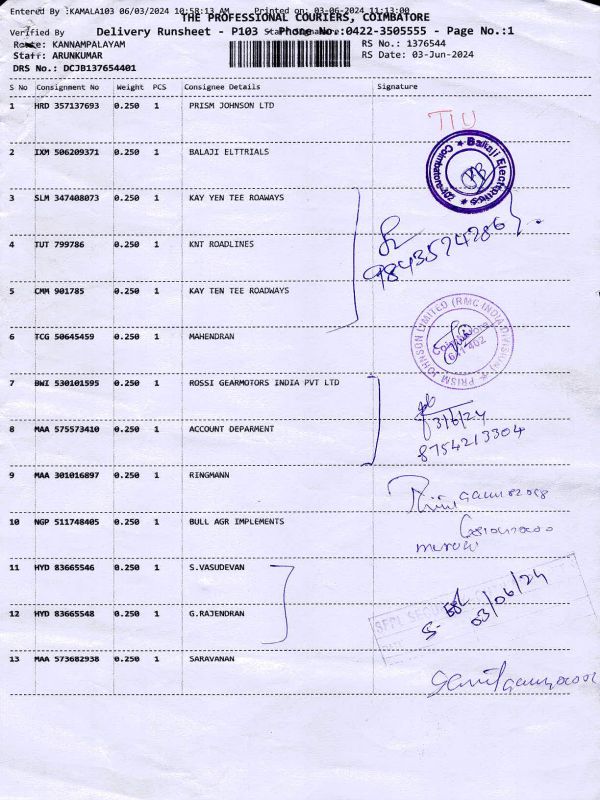 Entered By :KAMALA103 06/03/2024 10:58:13 AM Printed on: 03-06-2024 11:13:00
THE PROFESSIONAL COURIERS, COIMBATORE
Verified By
Delivery Runsheet - P103 Staff Signature Phone No.:0422-3505555 - Page No.:1
Route: KANNAMPALAYAM RS No.: 1376544
Staff: ARUNKUMAR RS Date: 03-Jun-2024
DRS No.: DCJB137654401
S No Consignment No Weight PCS Consignee Details Signature
1 HRD 357137693 0.250 1 PRISM JOHNSON LTD
TIU
2 IXM 506209371 0.250 1 BALAJI ELTTRIALS
Balaji Electronics
3 SLM 347408073 0.250 1 KAY YEN TEE ROAWAYS
4 TUT 799786 0.250 1 KNT ROADLINES
9843574286
5 CMM 901785 0.250 1 KAY TEN TEE ROADWAYS
6 TCG 50645459 0.250 1 MAHENDRAN
PRISM JOHNSON LIMITED (RMC INDIA DIVISION)
Coimbatore
641 402
7 BWI 530101595 0.250 1 ROSSI GEARMOTORS INDIA PVT LTD
3/6/24
8 MAA 575573410 0.250 1 ACCOUNT DEPARMENT
8754213304
9 MAA 301016897 0.250 1 RINGMANN
10 NGP 511748405 0.250 1 BULL AGR IMPLEMENTS
11 HYD 83665546 0.250 1 S.VASUDEVAN
03/06/24
12 HYD 83665548 0.250 1 G.RAJENDRAN
13 MAA 573682938 0.250 1 SARAVANAN